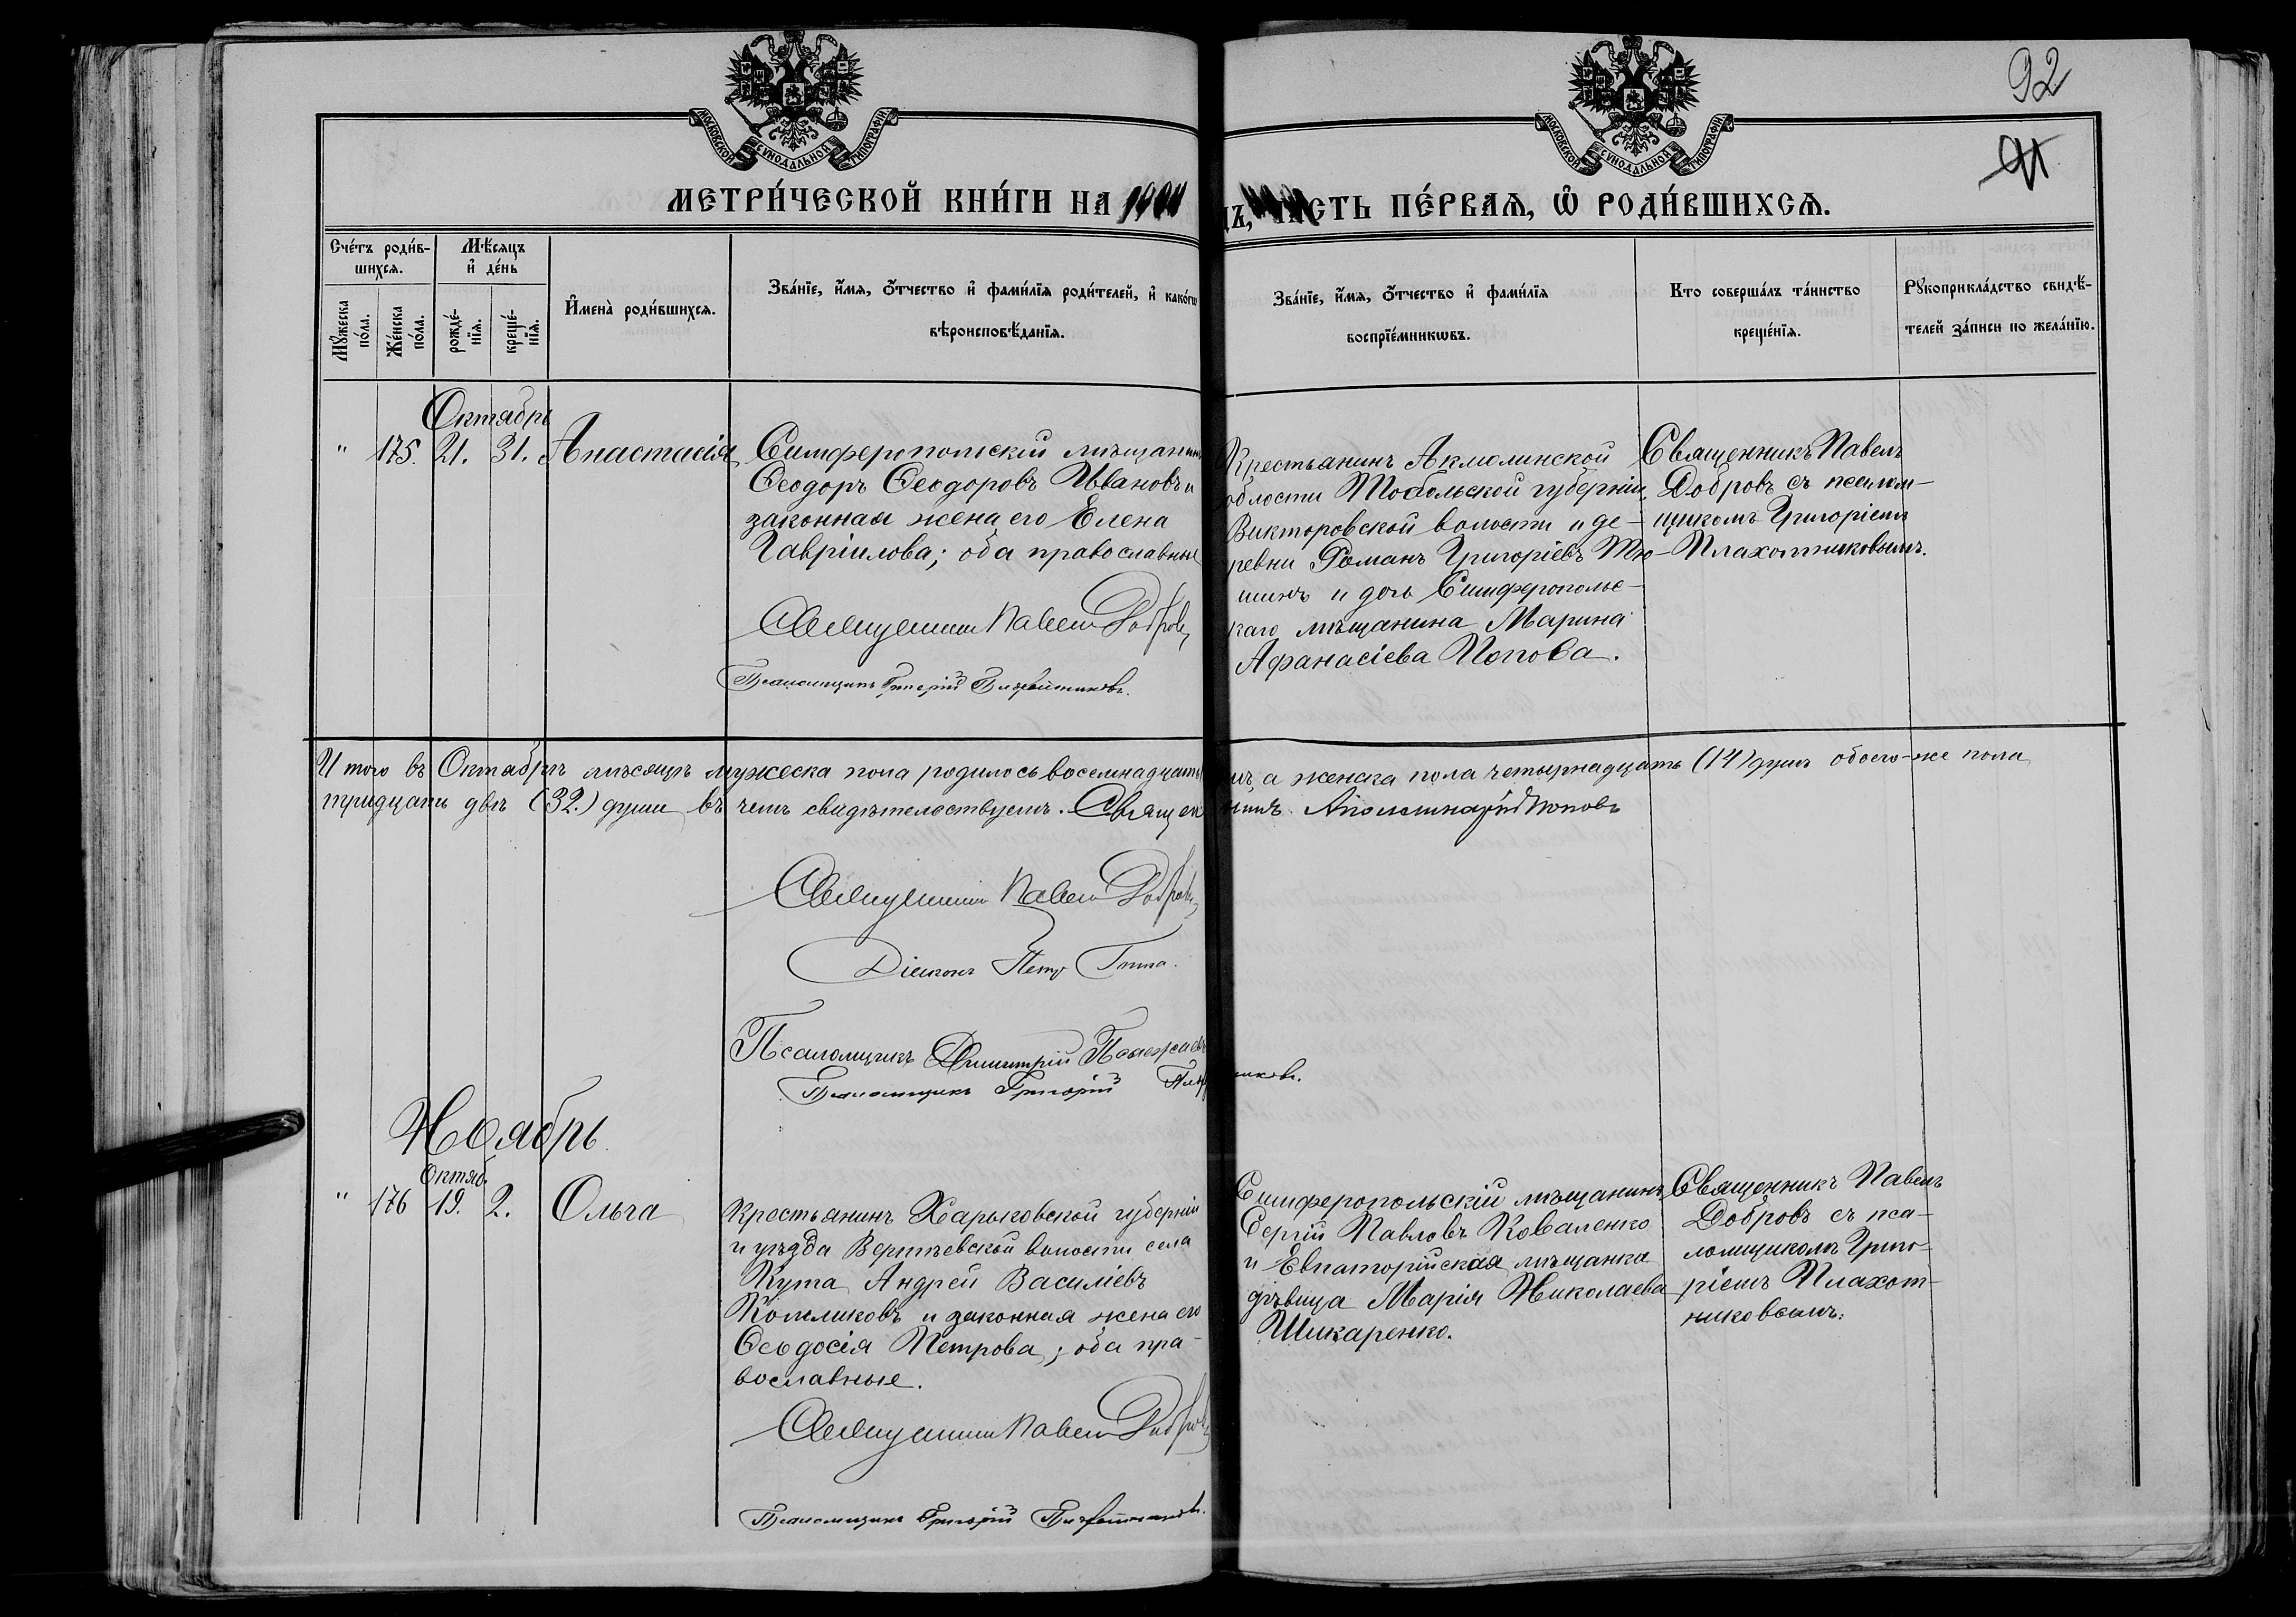 92
МОСКОВСКОЙ СѴНОДАЛЬНОЙ ТИПОГРАФІИ
МОСКОВСКОЙ СѴНОДАЛЬНОЙ ТИПОГРАФІИ
91
МЕТРИ́ЧЕСКОЙ КНИ́ГИ НА
СТЬ ПЕ́РВАѦ, Ѿ РОДИ́ВШИХСѦ.
Сче́тъ роди́в-
шихсѧ.
Мѣ́сяцъ
и҆ де́нь
Мꙋ́жеска
по́ла.
Же́нска
по́ла.
рожде́-
нїѧ.
креще́-
нїѧ.
И҆мена̀ роди́вшихсѧ.
Зва́нїе, и҆́мѧ, ѻ҆́тчество и҆ фами́лїѧ роди́телей, и҆ како́гѡ
вѣроисповѣ́данїѧ.
Зва́нїе, и҆́мѧ, ѻ҆́тчество и҆ фами́лїѧ
воспрїе́мникѡвъ.
Кто соверша́лъ та́инство
креще́нїѧ.
Рꙋкоприкла́дство свидѣ́-
телей за́писи по жела́нїю.
Октябрь
" 175. 21. 31. Анастасія
Симферопольскій мѣщанинъ
Ѳеодоръ Ѳеодоровъ Ивановъ и
законная жена его Елена
Гавріилова; оба православные
Священникъ Павелъ Добровъ
Псаломщикъ Григорій Плахотниковъ.
Крестьянинъ Акмолинской
области Тобольской губерніи,
Викторовской волости и де-
ревни Романъ Григоріевъ Тю-
шинъ и дочь Симферопольс-
каго мѣщанина Марина
Афанасіева Попова.
Священникъ Павелъ
Добровъ съ псалом-
щикомъ Григоріемъ
Плахотниковымъ.
Итого въ Октябрѣ мѣсяцѣ мужеска пола родилось восемнадцать а женска пола четырнадцать (14) душъ обоего-же пола
тридцать двѣ (32.) души въ чемъ свидѣтельствуемъ. Священникъ Аполлинарій Поповъ
Священникъ Павелъ Добровъ
Діаконъ Петръ
Псаломщикъ Димитрій
Псаломщикъ Григорій Плахотниковъ.
Ноябрь
Октяб.
" 176 19. 2. Ольга
Крестьянинъ Харьковской губерніи
и уѣзда волости села
Кута Андрей Василіевъ
и законная жена его
Ѳеодосія Петрова; оба пра-
вославные.
Священникъ Павелъ Добровъ
Псаломщикъ Григорій Плахотниковъ.
Симферопольскій мѣщанинъ
Сергій Павловъ Коваленко
и Евпаторійская мѣщанка
дѣвица Марія Николаева
Шикаренко.
Священникъ Павелъ
Добровъ съ пса-
ломщикомъ Григо-
ріемъ Плахот-
никовымъ.